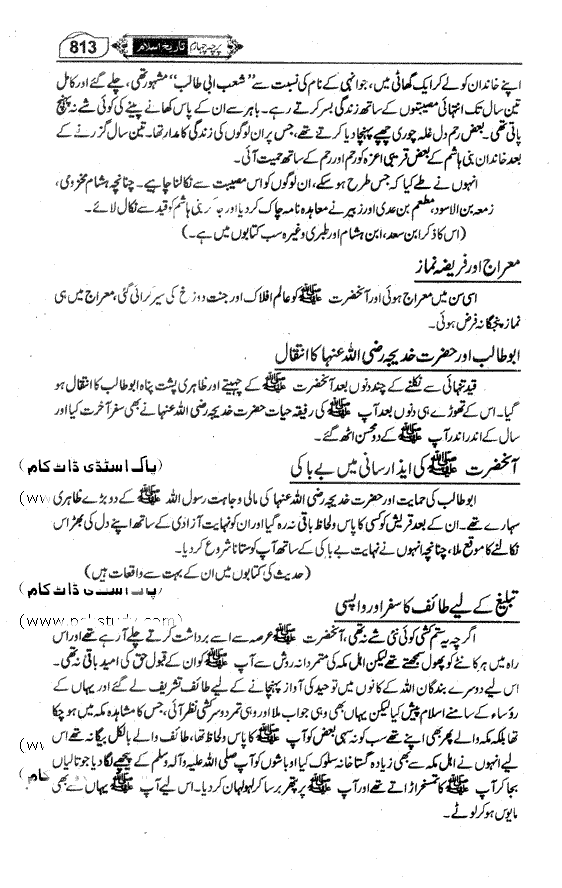 813 پرچہ چہارم تاریخ اسلام
اپنے خاندان کو لے کر ایک گھاٹی میں، جو انہی کے نام کی نسبت سے ”شعب ابی طالب“ مشہور تھی، چلے گئے اور کامل
تین سال تک انتہائی مصیبتوں کے ساتھ زندگی بسر کرتے رہے۔ باہر سے ان کے پاس کھانے پینے کی کوئی شے نہ پہنچ
پاتی تھی۔ بعض رحم دل غلہ چوری چھپے پہنچا دیا کرتے تھے، جس پر ان لوگوں کی زندگی کا مدار تھا۔ تین سال گزرنے کے
بعد خاندان بنی ہاشم کے بعض قریبی اعزہ کو رحم اور رحم کے ساتھ حمیت آئی۔
انہوں نے طے کیا کہ جس طرح ہو سکے، ان لوگوں کو اس مصیبت سے نکالنا چاہیے۔ چنانچہ ہشام مخزومی،
زمعہ بن الاسود، مطعم بن عدی اور زبیر نے معاہدہ نامہ چاک کر دیا اور جا کر بنی ہاشم کو قید سے نکال لائے۔
(اس کا ذکر ابن سعد، ابن ہشام اور طبری وغیرہ سب کتابوں میں ہے۔)
معراج اور فریضہ نماز
اسی سن میں معراج ہوئی اور آنحضرت ﷺ کو عالم افلاک اور جنت دوزخ کی سیر کرائی گئی، معراج میں ہی
نماز پنجگانہ فرض ہوئی۔
ابو طالب اور حضرت خدیجہ رضی اللہ عنہا کا انتقال
قید تنہائی سے نکلنے کے چند دنوں بعد آنحضرت ﷺ کے چہیتے اور ظاہری پشت پناہ ابو طالب کا انتقال ہو
گیا۔ اس کے تھوڑے ہی دنوں بعد آپ ﷺ کی رفیقہ حیات حضرت خدیجہ رضی اللہ عنہا نے بھی سفر آخرت کیا اور
سال کے اندر اندر آپ ﷺ کے دو محسن اٹھ گئے۔
آنحضرت ﷺ کی ایذا رسانی میں بے باکی
(پاک اسٹڈی ڈاٹ کام)
(ww
ابو طالب کی حمایت اور حضرت خدیجہ رضی اللہ عنہا کی مالی وجاہت رسول اللہ ﷺ کے دو بڑے ظاہری
سہارے تھے۔ ان کے بعد قریش کو کسی کا پاس و لحاظ باقی نہ رہ گیا اور ان کو نہایت آزادی کے ساتھ اپنے دل کی بھڑاس
نکالنے کا موقع ملا، چنانچہ انہوں نے نہایت بے باکی کے ساتھ آپ کو ستانا شروع کر دیا۔
(حدیث کی کتابوں میں ان کے بہت سے واقعات ہیں)
تبلیغ کے لیے طائف کا سفر اور واپسی
(پاک اسٹڈی ڈاٹ کام
(www.pakstudy.com)
اگرچہ یہ ستم کشی کوئی نئی شے نہ تھی، آنحضرت ﷺ عرصہ سے اسے برداشت کرتے چلے آ رہے تھے اور اس
راہ میں ہر کانٹے کو پھول سمجھتے تھے لیکن اہل مکہ کی متمردانہ روش سے آپ ﷺ کو ان کے قبول حق کی امید باقی نہ تھی۔
اس لیے دوسرے بندگان اللہ کے کانوں میں توحید کی آواز پہنچانے کے لیے طائف تشریف لے گئے اور یہاں کے
رؤساء کے سامنے اسلام پیش کیا لیکن یہاں بھی وہی جواب ملا اور وہی تمرد و سرکشی نظر آئی، جس کا مشاہدہ مکہ میں ہو چکا
(ww
تھا بلکہ مکہ والے پھر بھی اپنے تھے سب کو نہ سہی بعض کو آپ ﷺ کا پاس و لحاظ تھا، طائف والے بالکل بیگانہ تھے اس
لیے انہوں نے اہل مکہ سے بھی زیادہ گستاخانہ سلوک کیا اوباشوں کو آپ صلی اللہ علیہ وآلہ وسلم کے پیچھے لگا دیا جو تالیاں
کام)
بجا کر آپ ﷺ کا تمسخر اڑاتے تھے اور آپ ﷺ پر پتھر برسا کر لہولہان کر دیا۔ اس لیے آپ ﷺ یہاں سے بھی
مایوس ہو کر لوٹے۔